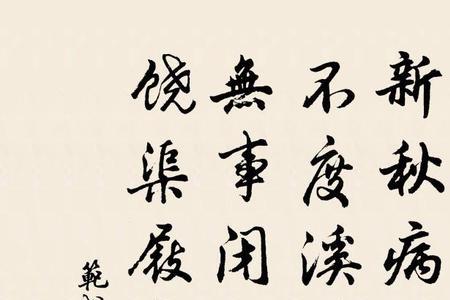 新秋病
不度溪
無事闭
饶渠屐
範